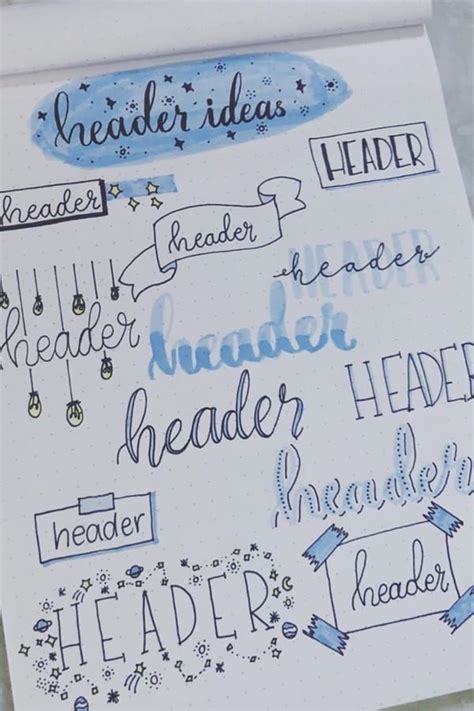 header ideas
HEADER
header
header
header
HEADER
header
header
HEADER
header
header
header
header
HEADER